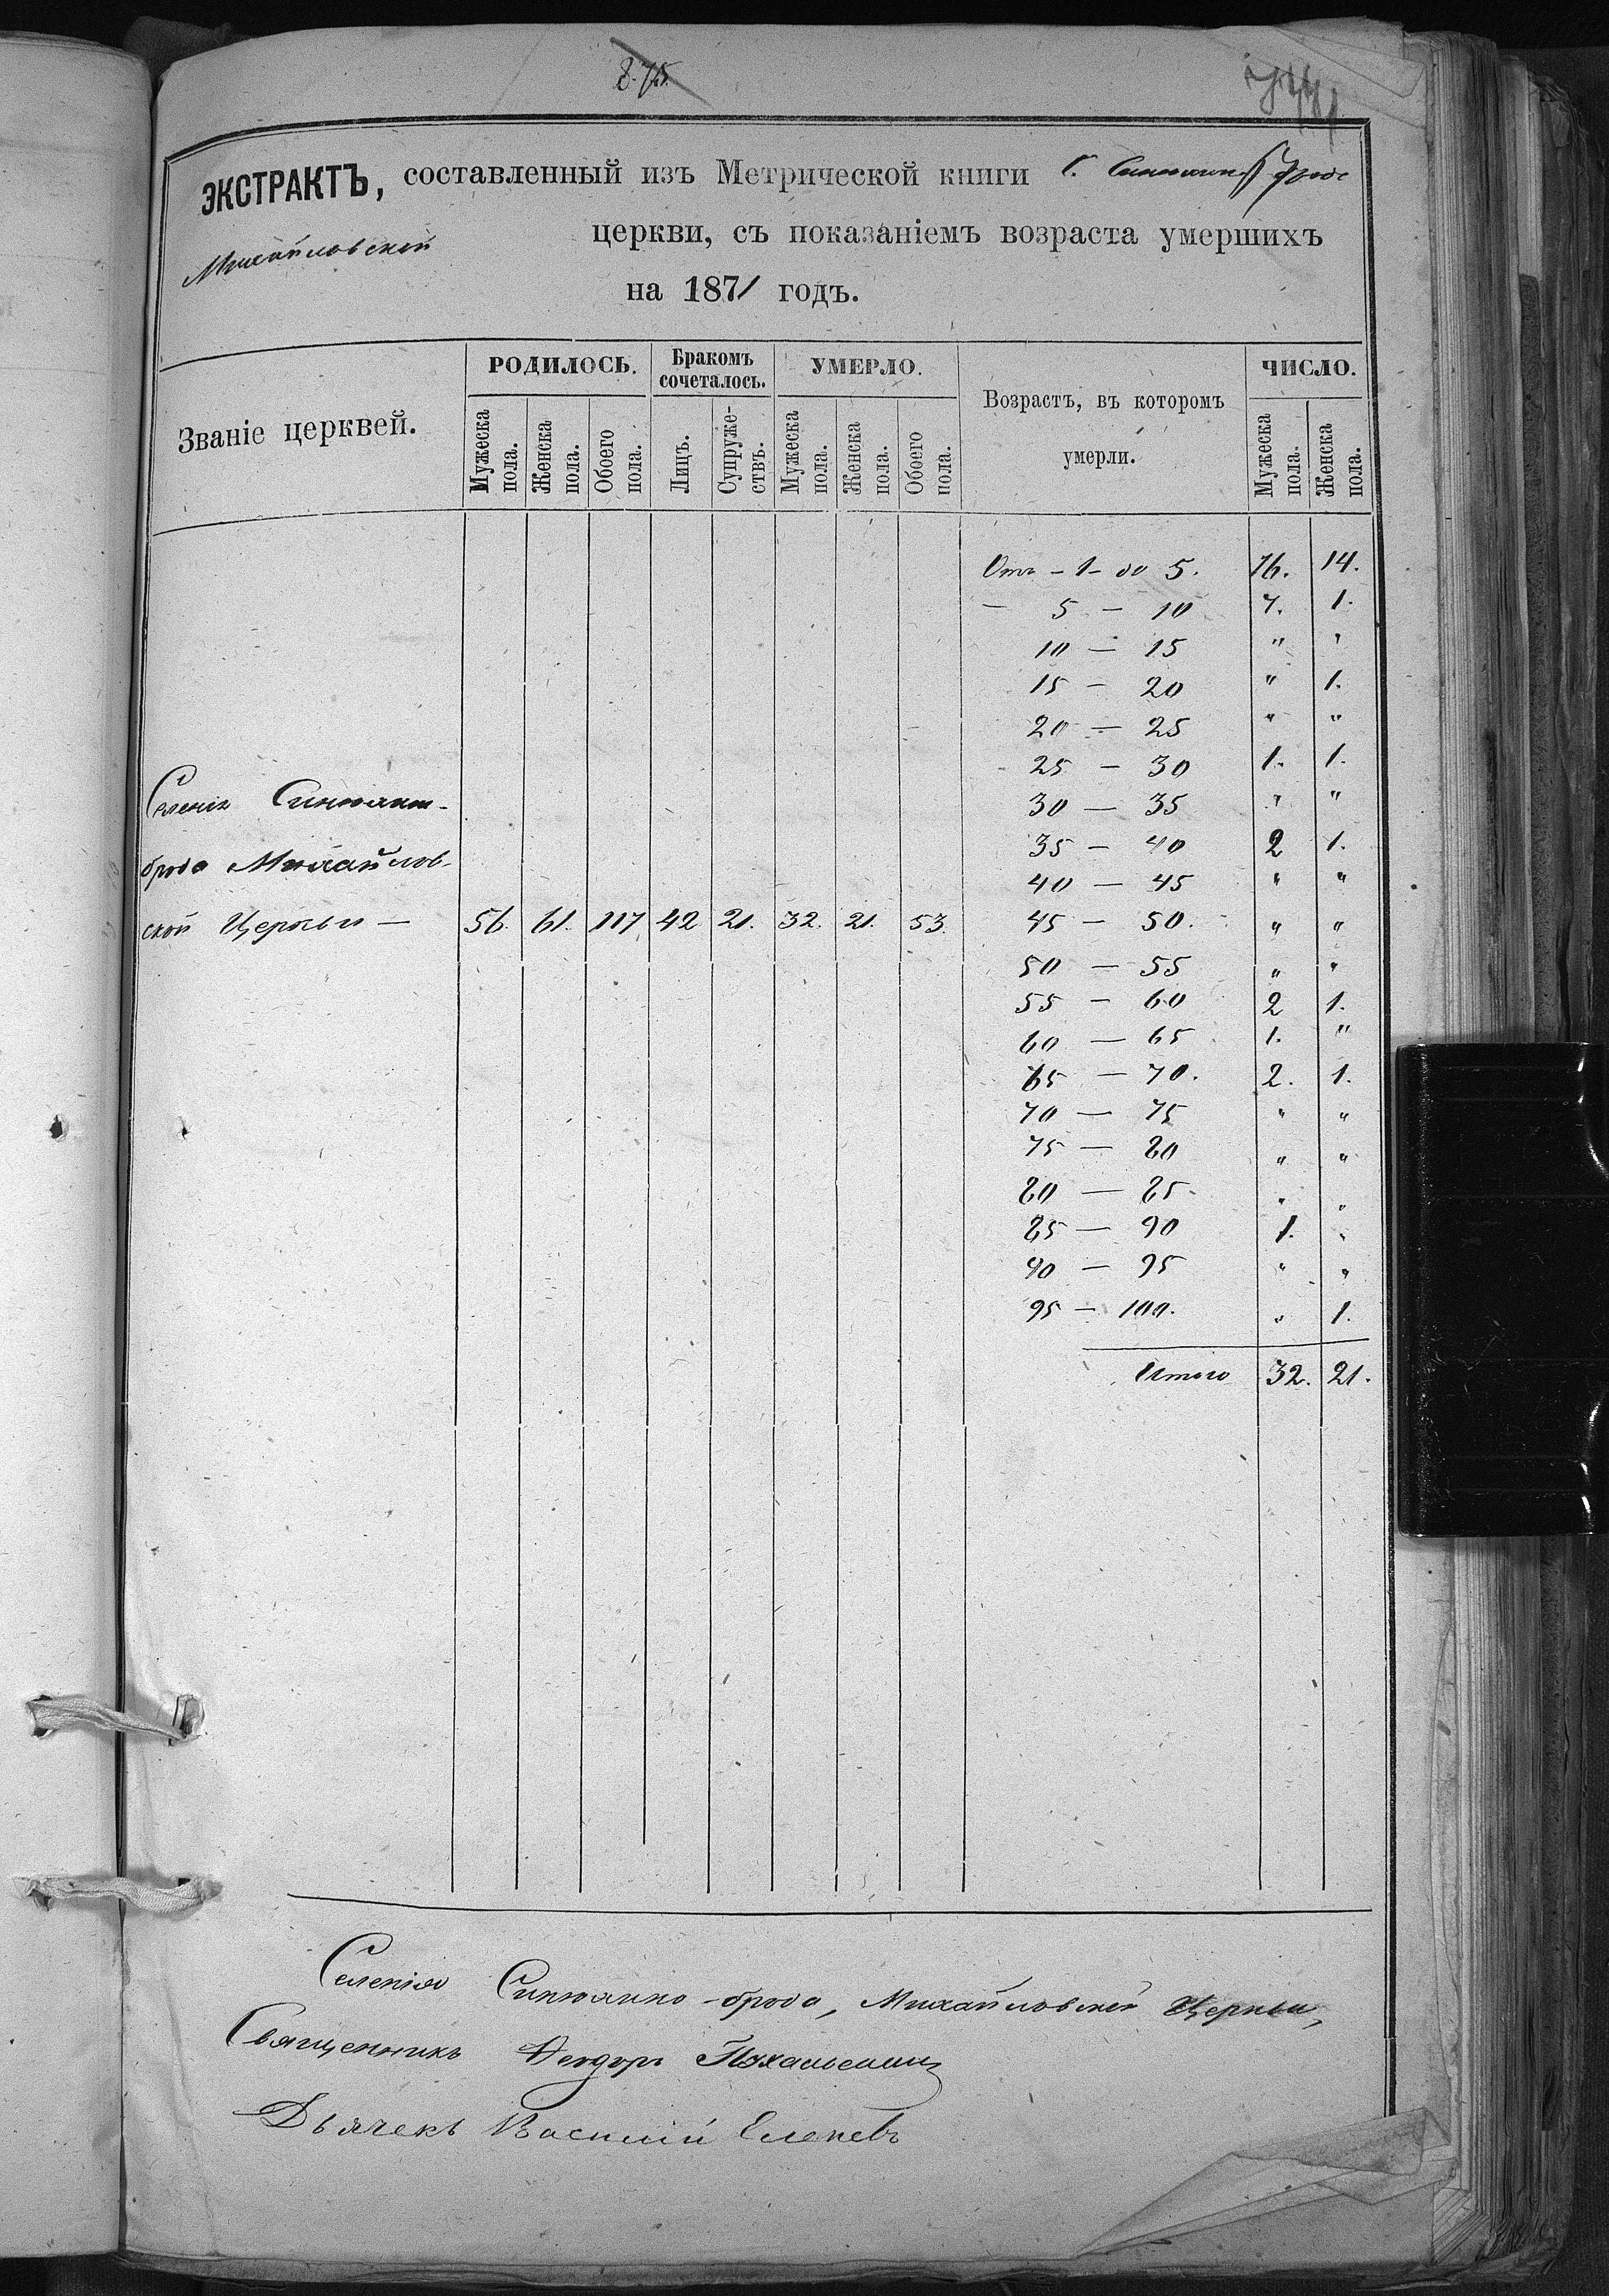 875.
ЭКСТРАКТЪ, составленный изъ Метрической книги С. Синюхинобродс
Михайловской церкви, съ показаніемъ возраста умершихъ
на 1871 годъ.
Званіе церквей. РОДИЛОСЬ. Бракомъ сочеталось. УМЕРЛО. Возрастъ, въ которомъ умерли. ЧИСЛО.
Мужеска пола. Женска пола. Обоего пола. Лицъ. Супружествъ. Мужеска пола. Женска пола. Обоего пола. Мужеска пола. Женска пола.
Отъ - 1 - до 5. 16. 14.
— 5 — 10 7. 1.
10 — 15 " "
15 — 20 " 1.
20 — 25 " "
25 — 30 1. 1.
Селенія Синюхино- 30 — 35 " "
35 — 40 2 1.
брода Михайлов- 40 — 45 " "
ской Церкви — 56. 61. 117 42 21. 32. 21. 53. 45 — 50. " "
50 — 55 " "
55 — 60 2 1.
60 — 65 1. "
65 — 70. 2. 1.
70 — 75 " "
75 — 80 " "
80 — 85. " "
85 — 90 1. "
90 — 95 " "
95 — 100. " 1.
Итого 32. 21.
Селенія Синюхино-брода, Михайловской Церкви,
Священникъ Ѳеодоръ
Дьячекъ Василій